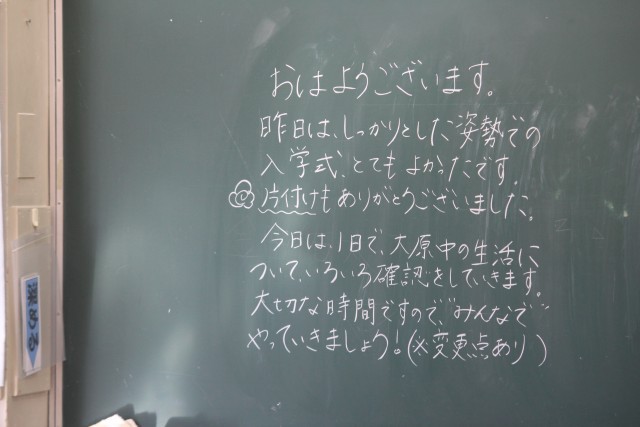 おはようございます。
昨日は、しっかりとした姿勢での
入学式、とてもよかったです。
片付けもありがとうございました。
今日は、1日で、大原中の生活に
ついて、いろいろ確認をしていきます。
大切な時間ですので、"みんなで"
やっていきましょう!(※変更点あり)